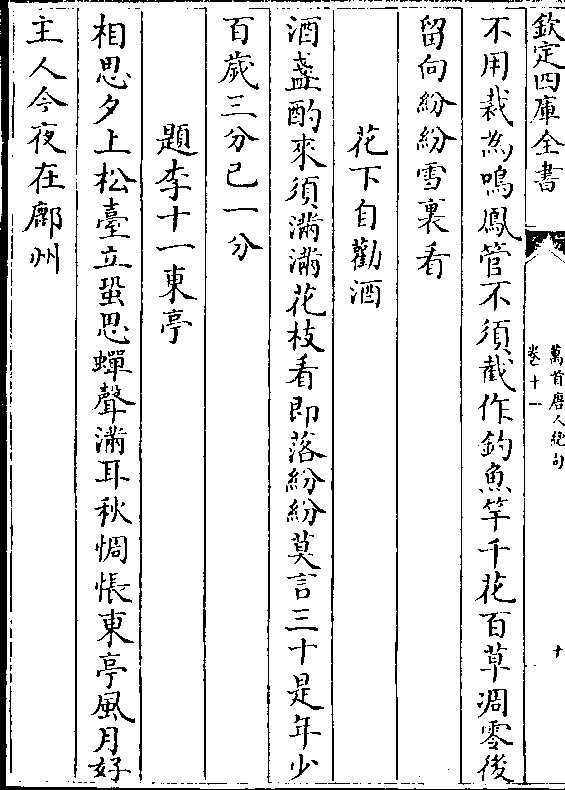 欽定四庫全書
萬首唐人絶句
卷十一
十
不用裁為鳴鳳管不須截作釣魚竿千花百草凋零後
留向紛紛雪裏看
花下自勸酒
酒盞酌來須滿滿花枝看即落紛紛莫言三十是年少
百歲三分已一分
題李十一東亭
相思夕上松臺立蛩思蟬聲滿耳秋惆悵東亭風月好
主人今夜在鄜州